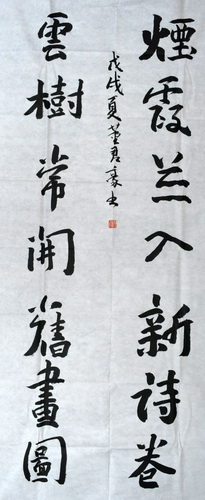 煙霞並入新詩卷
雲樹常開舊畫圖
戊戌夏董君豪书